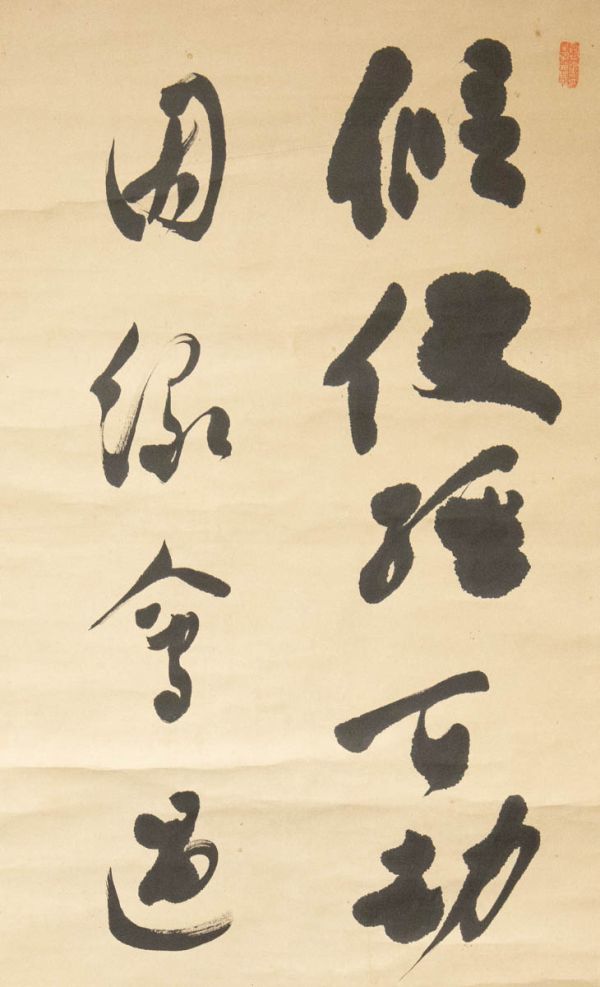 假使經百劫
因緣會遇